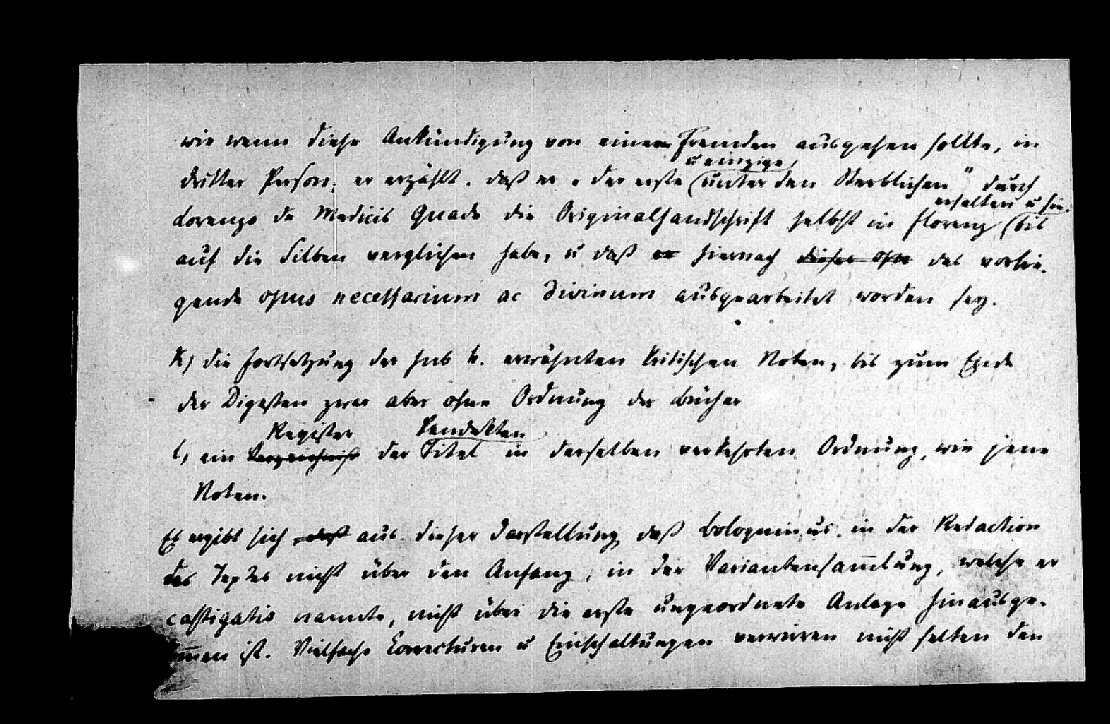 wie wenn diese Ankündigung von einem Fremden ausgehen sollte, in
u einzige,
dritter Person; er erzählt. daß er „ der erste (unter den Sterblichen" durch
erhalten u hie-
Lorenzo de Medicis Gnade die Originalhandschrift selbst in Florenz (bis
auf die Silben verglichen habe, u daß er hiernach dieser ohne das vorlie-
gende opus necessarium ac divinum ausgearbeitet worden sey.
k) die Fortsetzung der sub h. erwähnten kritischen Noten, bis zum Ende
der Digesten zwar aber ohne Ordnung der Bücher
Register Pandekten
l) ein Verzeichniß der Titel in derselben verkehrten Ordnung, wie jene
Noten.
Es ergibt sich daß aus dieser Darstellung daß Bologninus in der Redaction
des Textes nicht über den Anfang, in der Variantensam̅lung, welche er
castigatio nannte, nicht über die erste ungeordnete Anlage hinausge-
m̅en ist. Vielfache Correcturen u Einschaltungen verwirren nicht selten den